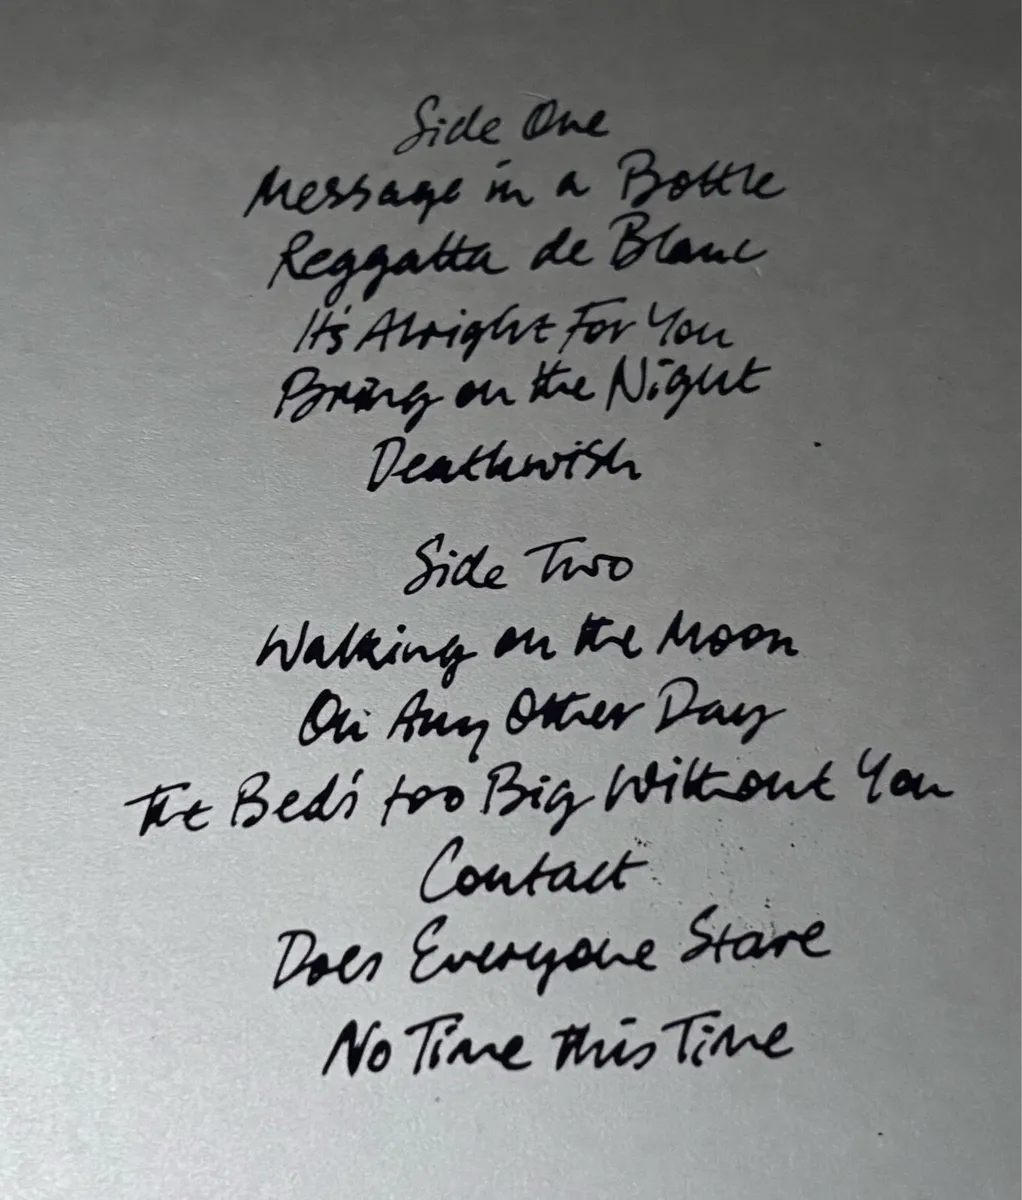 Side One
Message in a Bottle
Reggatta de Blanc
It's Alright For You
Bring on the Night
Deathwish
Side Two
Walking on the Moon
On Any Other Day
The Bed's too Big Without You
Contact
Does Everyone Stare
No Time this Time